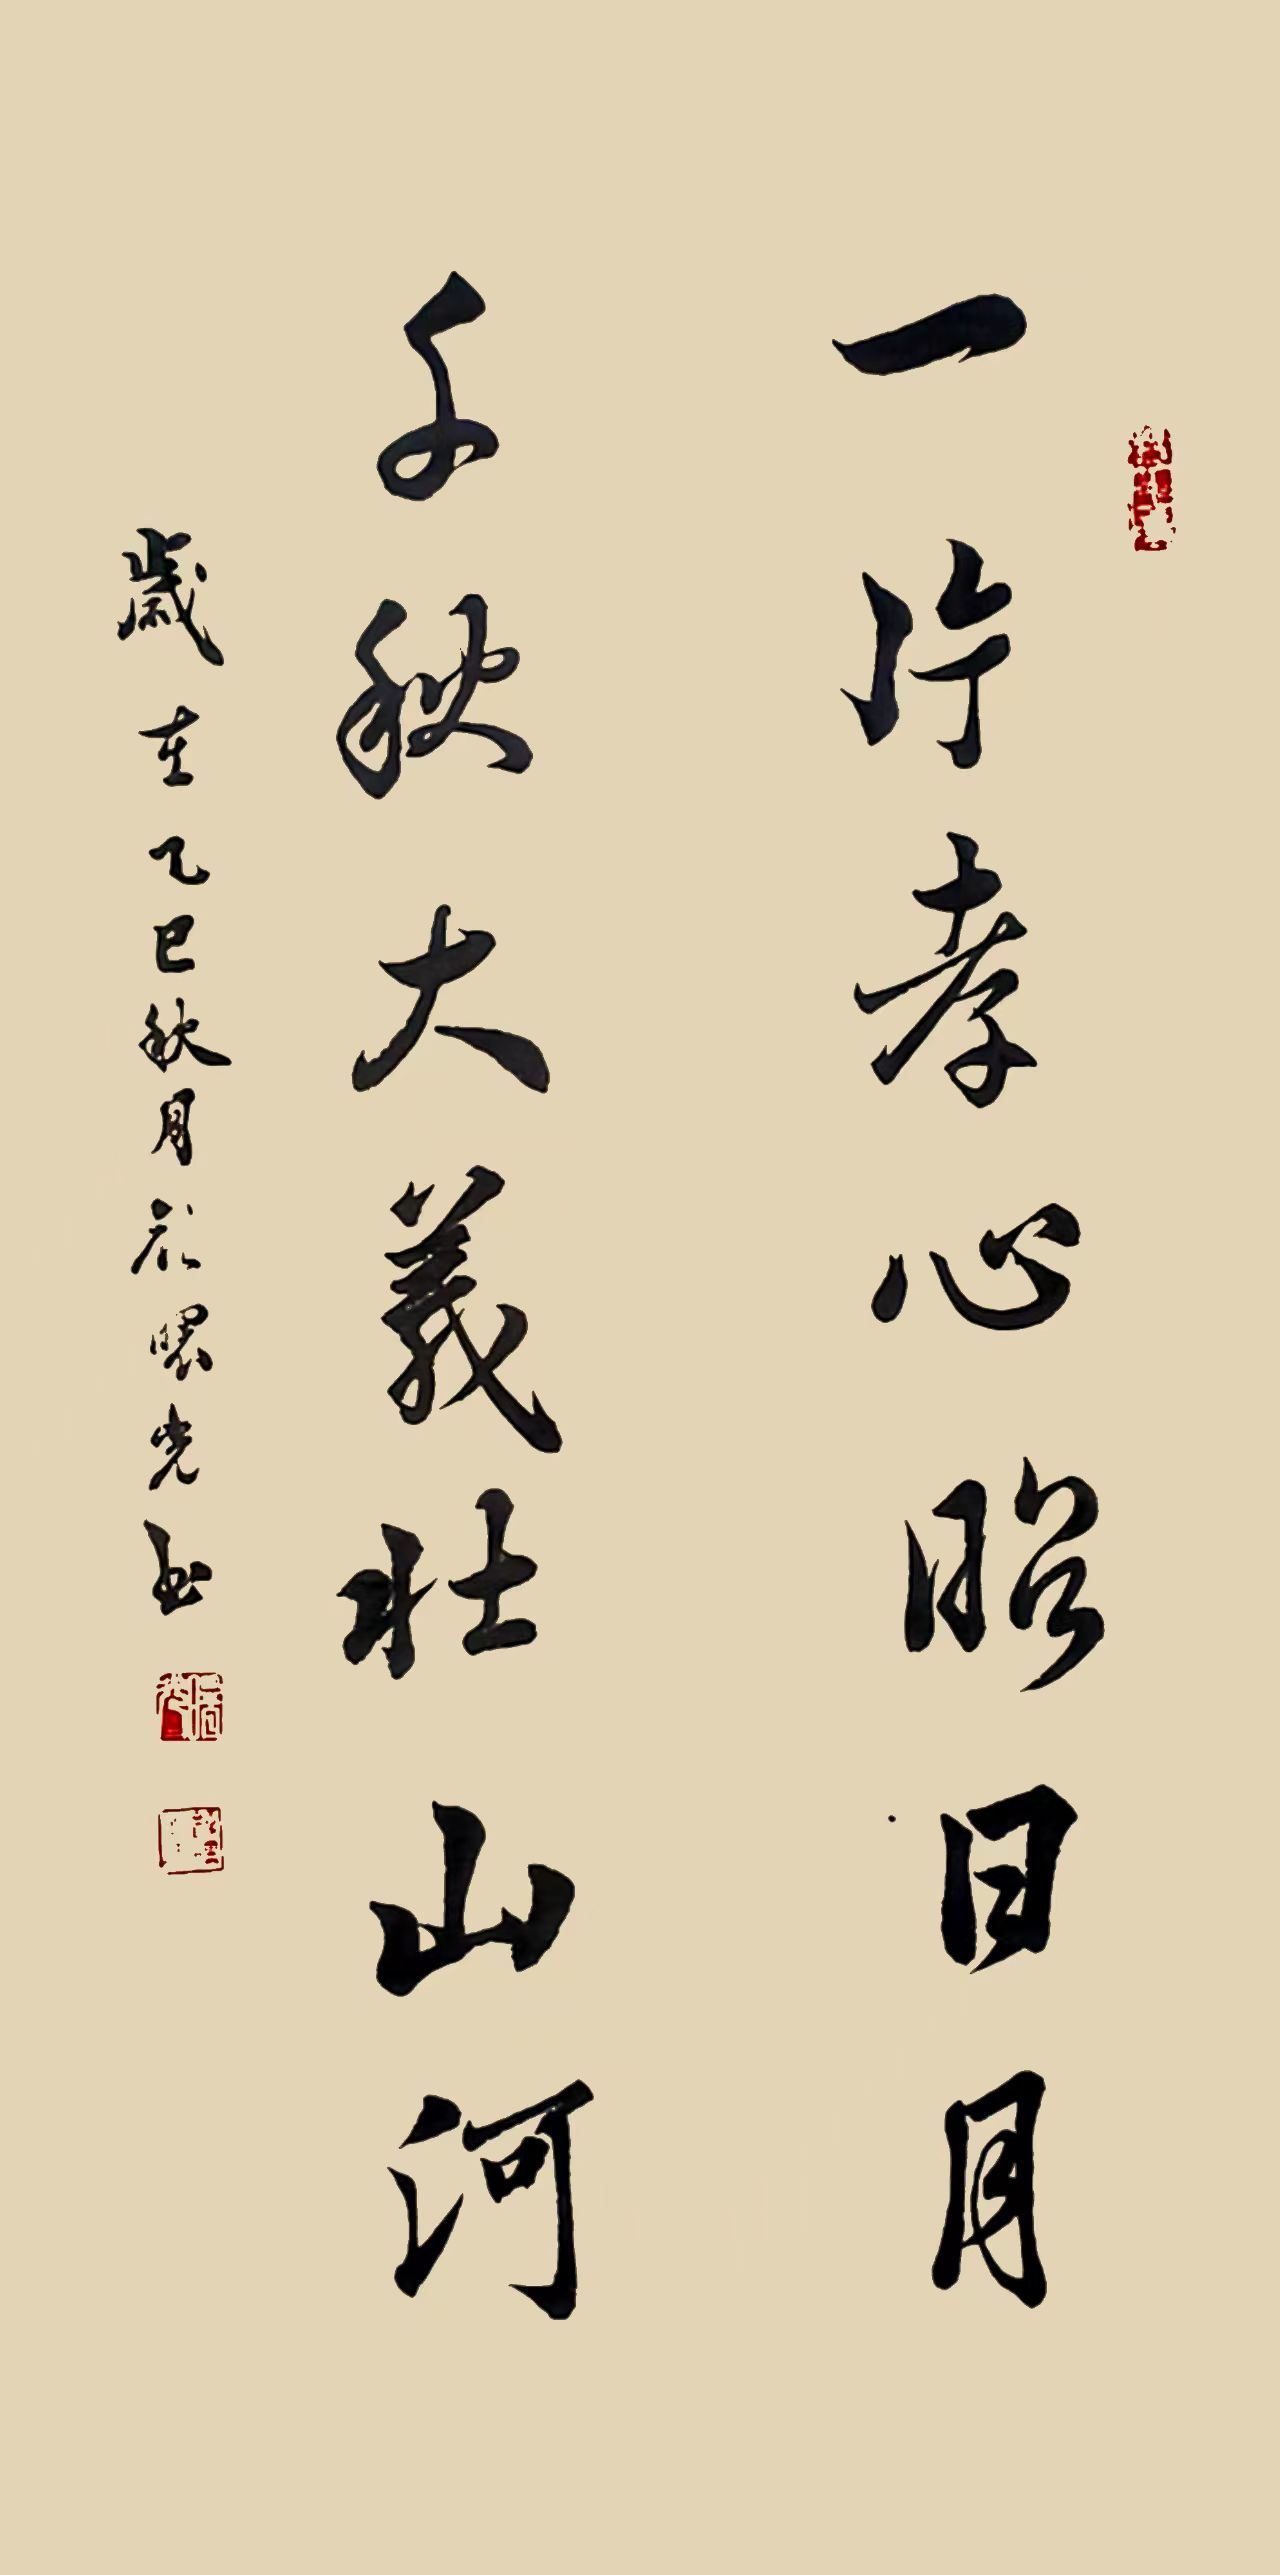 一片孝心昭日月
千秋大義壯山河
歲在乙巳秋月 光書